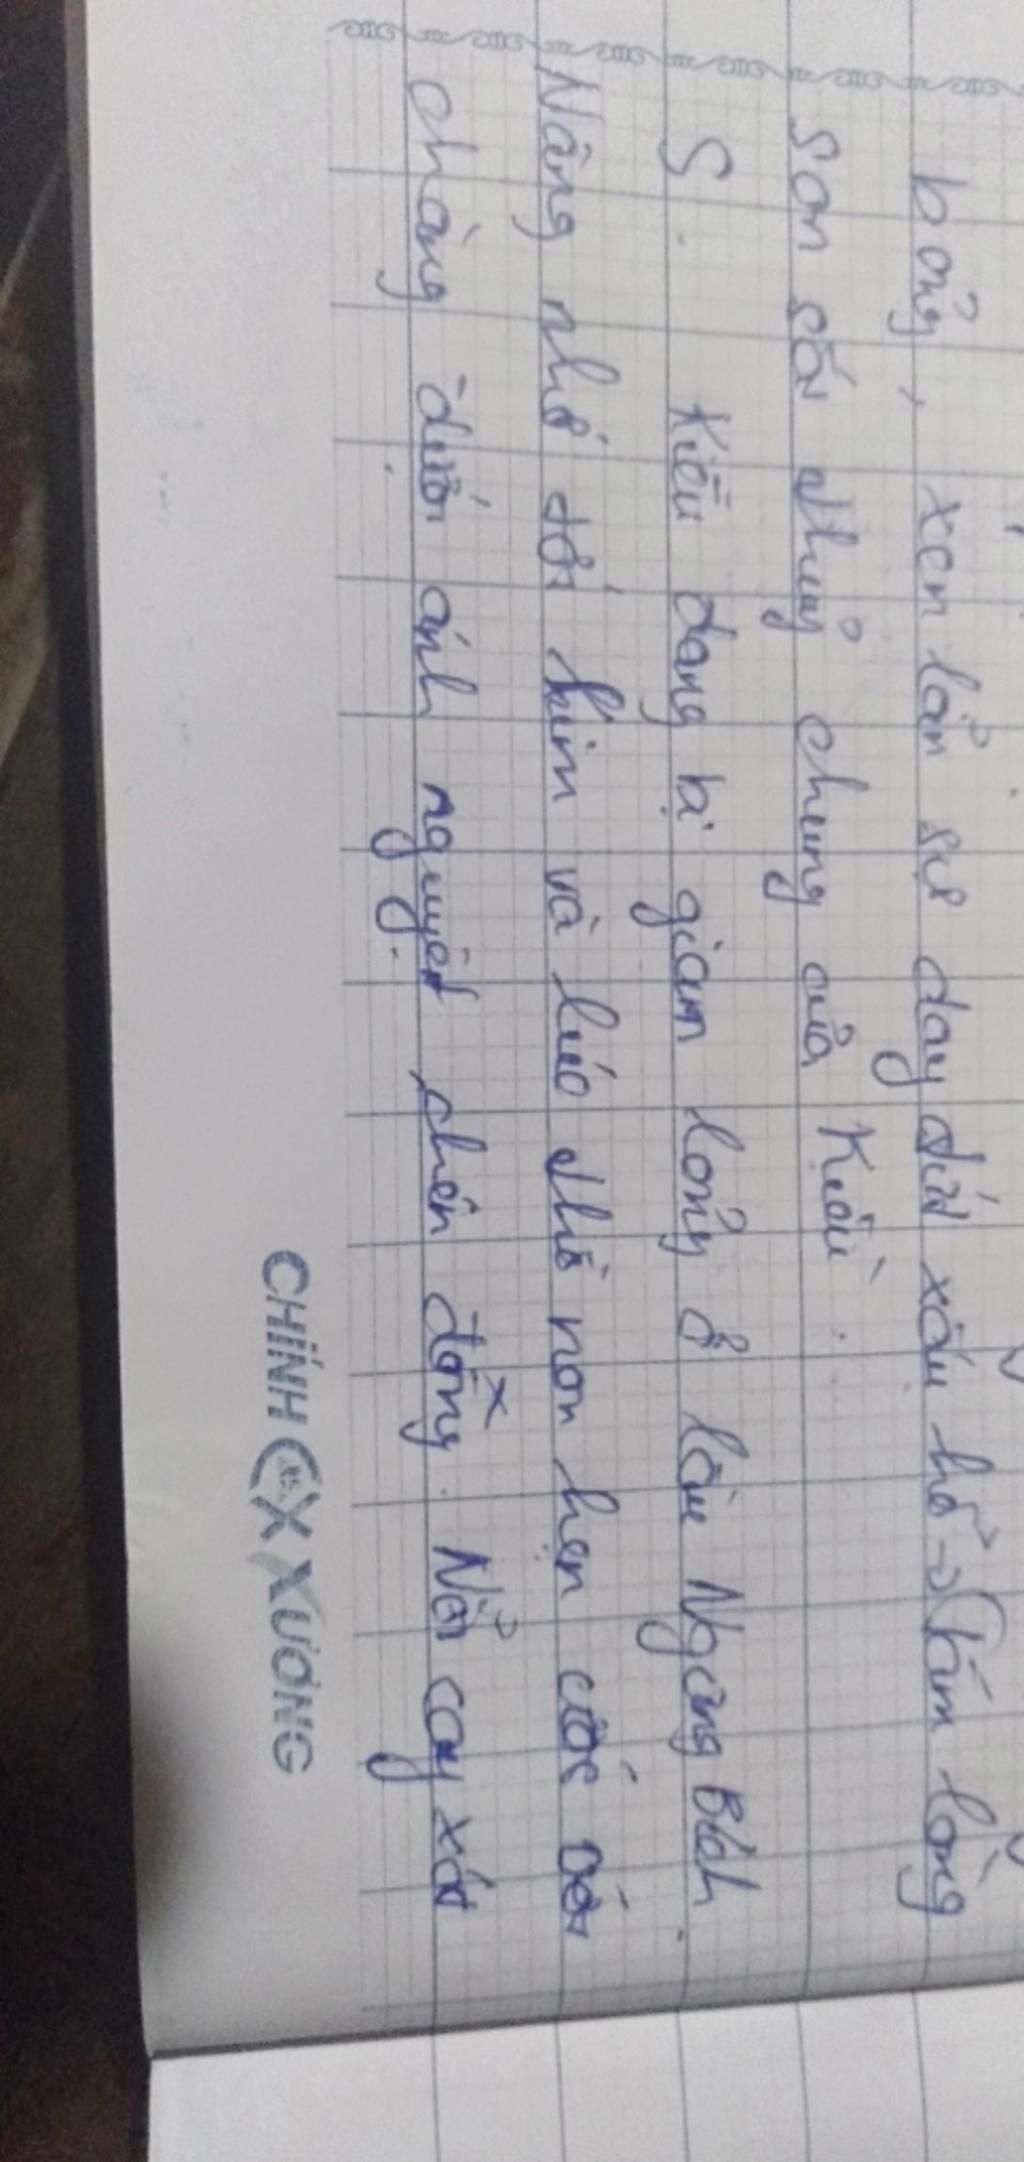 bỏng, xen lẫn sự day dứt xấu hổ → Tấm lòng
son sắt thuỷ chung của Kiều.
5. Kiều đang bị giam lỏng ở lầu Ngưng Bích.
Nàng nhớ tới kim và lúc thề non hẹn ước với
chàng dưới ánh nguyệt, chén đồng. Nỗi cay xót
CHÍNH CX XƯƠNG